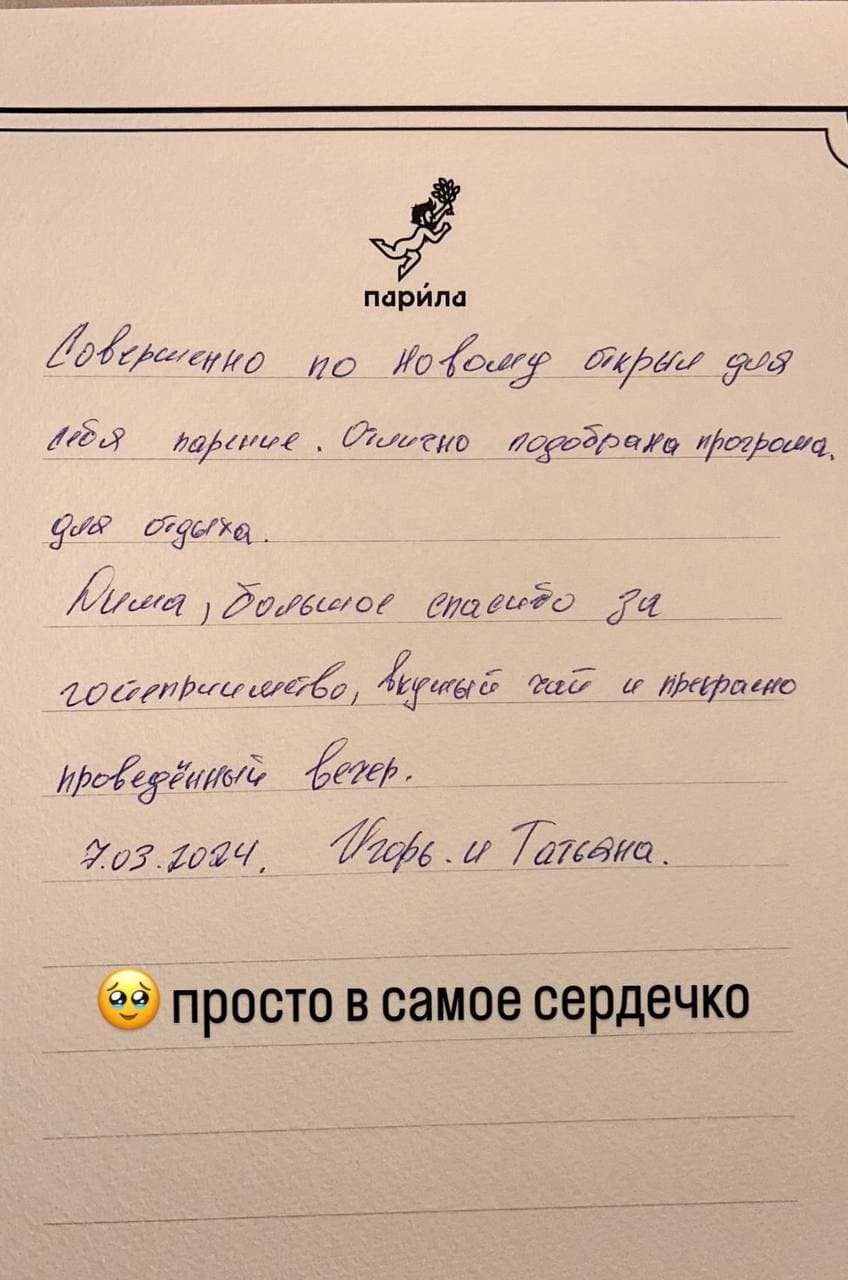 пари́ла
Совершенно по новому открыл для
себя парение. Отлично подобрана програма.
для отдыха.
Дима, большое спасибо за
гостеприимство, вкусный чай и прекрасно
проведённый вечер.
7.03.2024. Игорь. и Татьяна.
🥹 просто в самое сердечко